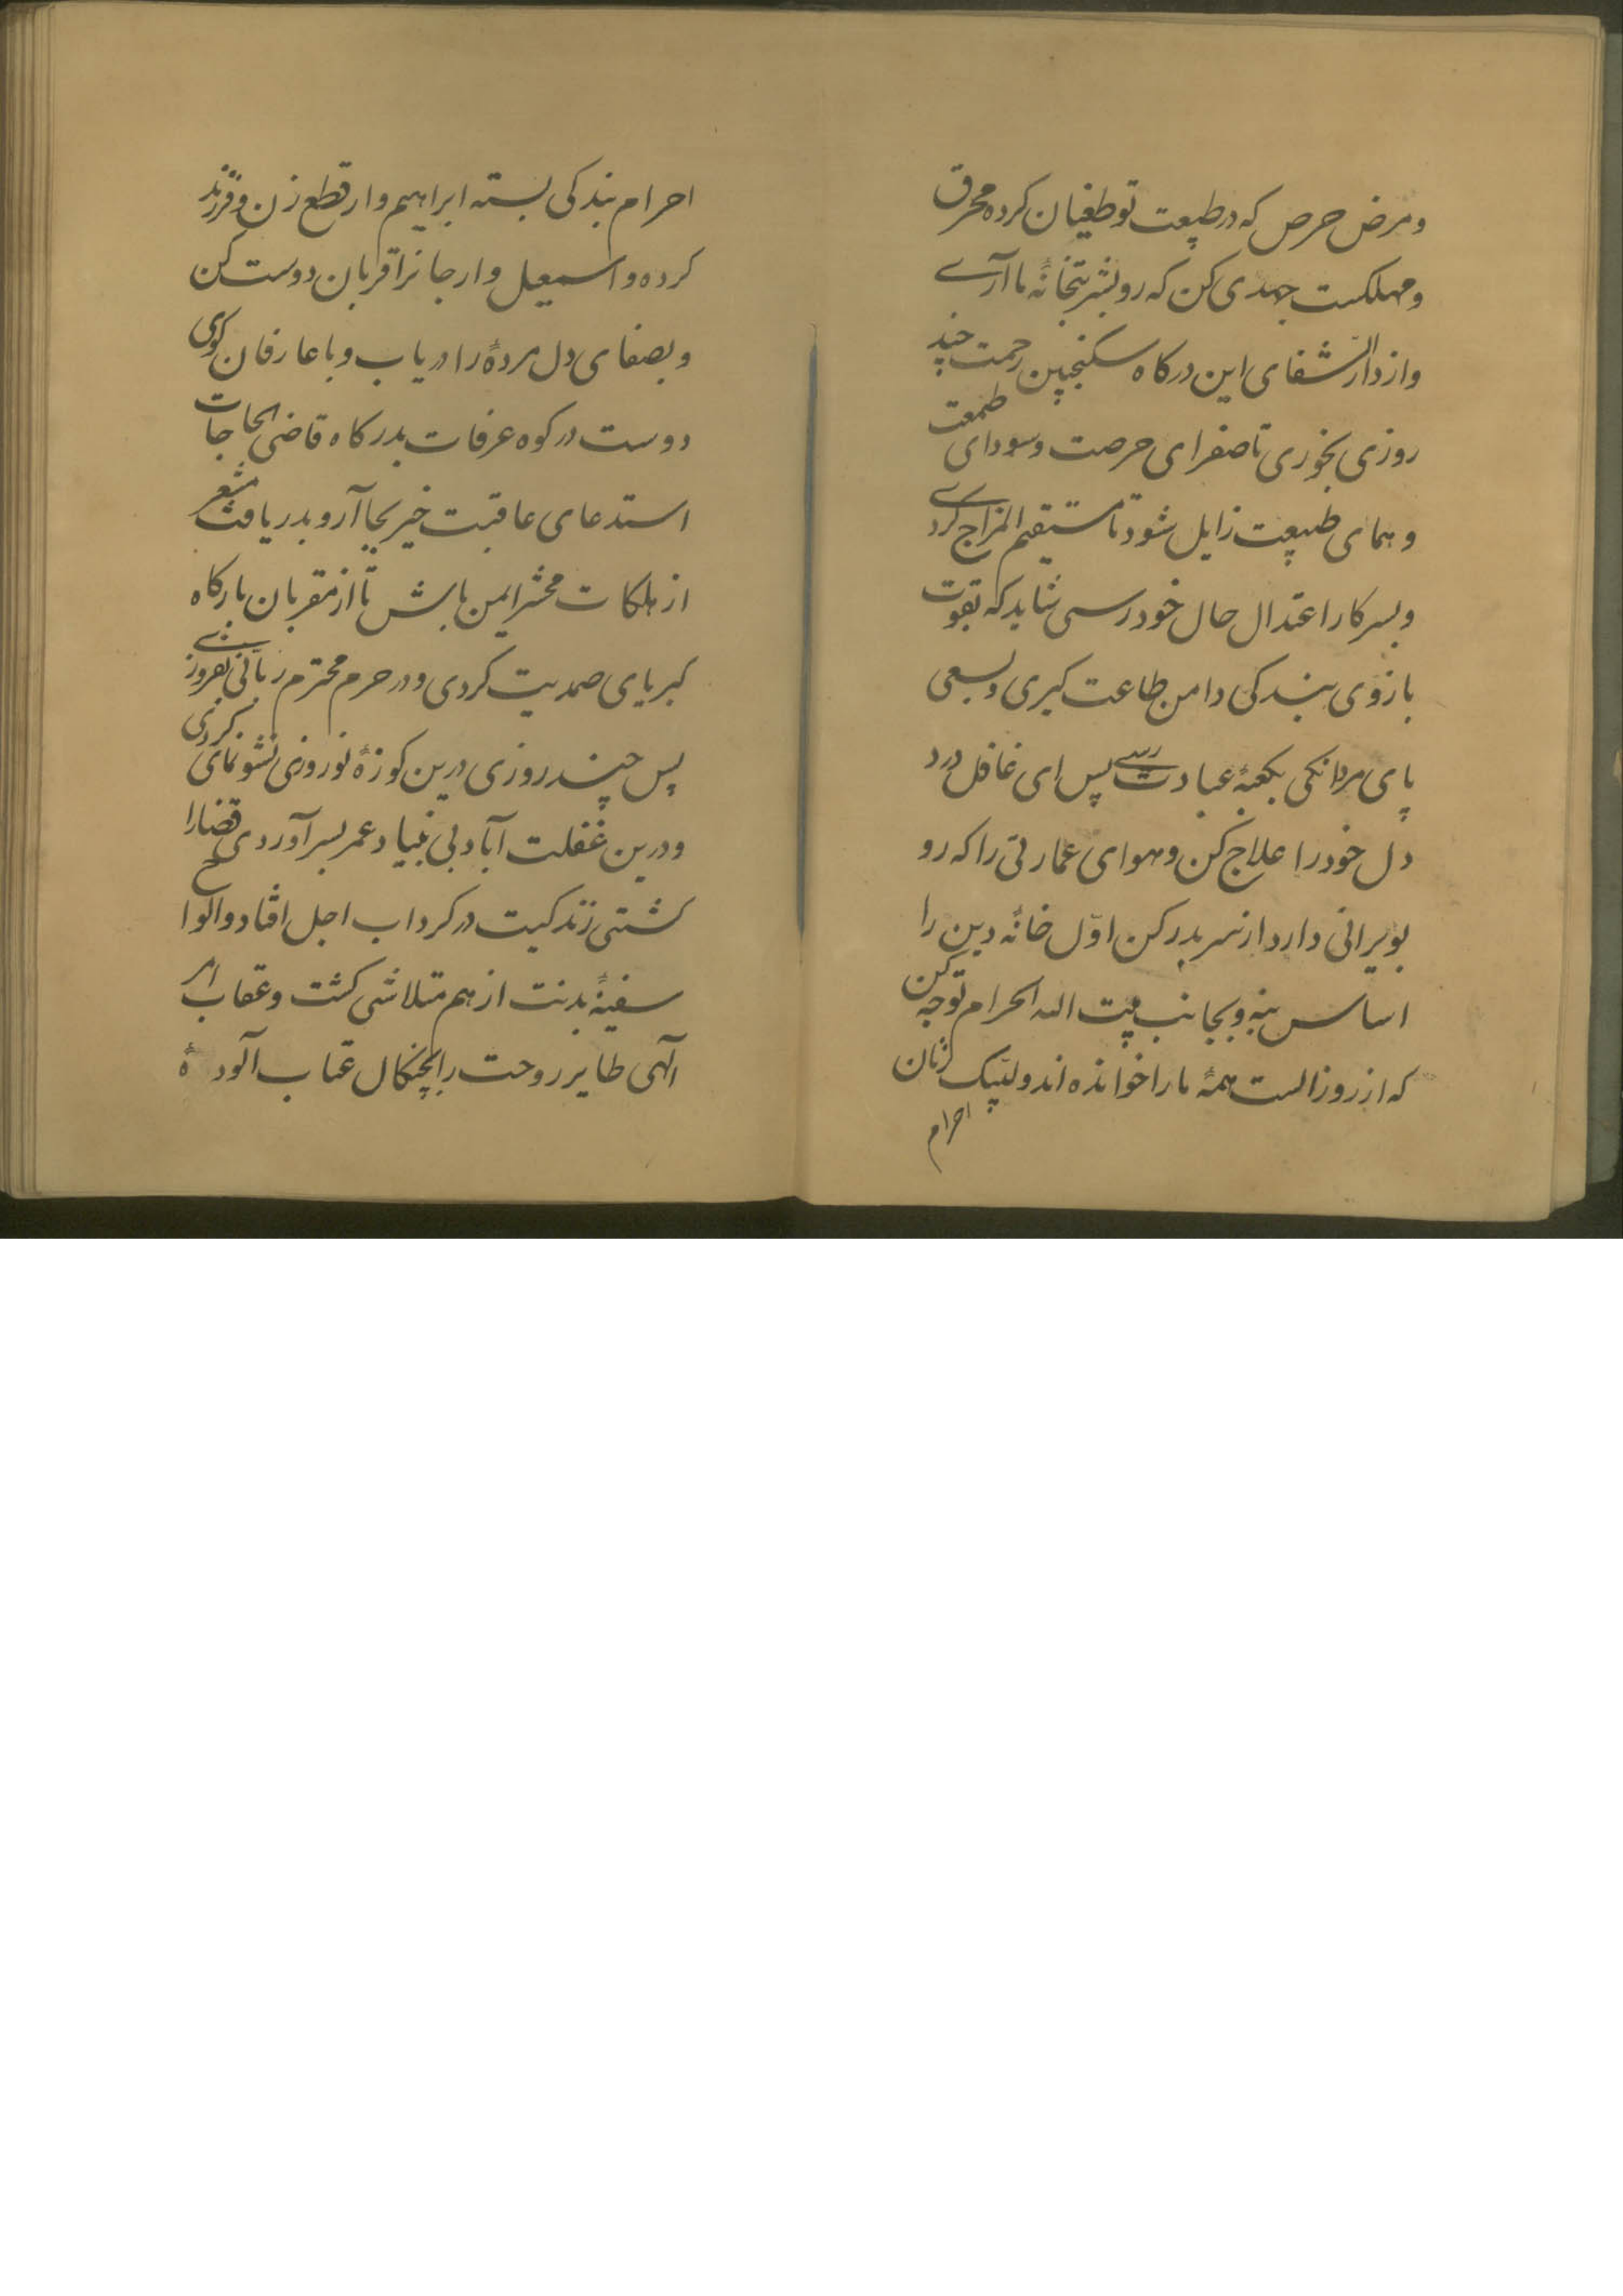 و مرض حرص که در طبیعت تو طغیان کرده محرق
و مهلکست جهدی کن که رو بشربتخانهٔ ما آرے
و از دار الشفای این درکاه سکنجبین رحمت چند
روزی بخوری تا صفرای حرصت و سودای طمعت
و همای طبیعت زایل شود تا مستقیم المزاج کردے
و بسر کار اعتدال حال خود رسی شاید که بقوت
بازوی بندکی دامن طاعت کیری و بسعی
پای مردانکی بکعبهٔ عبادت رسے پس ای غافل درد
دل خود را علاج کن و هوای عمارتی را که رو
بویرانی دارد از سر بدر کن اوّل خانهٔ دین را
اساس بنه و بجانب بیت الله الحرام توجه کن
که از روز الست همهٔ ما را خوانده اند و لبّیک زنان
احرام
احرام بندکی بسته ابراهیم وار قطع زن و فرزند
کرده و اسمعیل وار جانرا قربان دوست کن
و بصفای دل مردهٔ را دریاب و با عارفان کوی
دوست در کوه عرفات بدرکاه قاضی الحاجات
استدعای عاقبت خیر بجا آر و بدریافت مشعر
از هلکات محشر ایمن باش تا از مقربان بارکاه
کبریای صمدیت کردی و در حرم محترم ربّانی
پس چند روزی درین کوزهٔ نوروزی نشو نمای کردی
و درین غفلت آباد بی بنیاد عمر بسر آوردی قضا را
کشتی زندکیت در کرداب اجل افتاد و الوا ح
سفینهٔ بدنت از هم متلاشی کشت و عقاب امر
الهی طایر روحت را بچنکال عتاب آلودهٔ